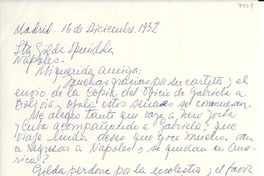 Madrid. 16 de Diciembre. 1932
Srta Gilda
Napoles.
Mi querida amiga:
Muchas gracias por su cartita y el
envio de la Copia del oficio de Gabriela a
Bolivia, ojalá estos señores se conmuevan.
Me alegro tanto que vaya a New York
y Cuba acompañando a Gabriela, que
viaje lindo deseo que goce mucho.
a regresar a Napoles o se quedan en Ame
rica?
Gilda perdone por la molestia y el favor